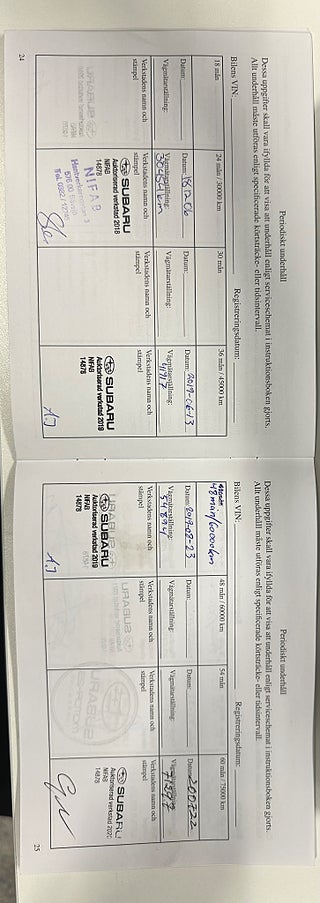 Periodiskt underhåll
Dessa uppgifter skall vara ifyllda för att visa att underhåll enligt serviceschemat i instruktionsboken gjorts.
Allt underhåll måste utföras enligt specificerade körsträcke- eller tidsintervall.
Bilens VIN:
Registreringsdatum:
18 mån
Datum:
Vägmätarställning:
Verkstadens namn och
stämpel
24 mån / 30000 km
Datum: 181206
Vägmätarställning:
Verkstadens namn och
stämpel
SUBARU
Auktoriserad verkstad 2018
NIFAB
14878
NIFAB
30 mån
Datum:
Vägmätarställning:
Verkstadens namn och
stämpel
36 mån / 45000 km
Datum: 2019-06-13
Vägmätarställning:
41917
Verkstadens namn och
stämpel
SUBARU
Auktoriserad verkstad 2019
NIFAB
14878
24
Periodiskt underhåll
Dessa uppgifter skall vara ifyllda för att visa att underhåll enligt serviceschemat i instruktionsboken gjorts.
Allt underhåll måste utföras enligt specificerade körsträcke- eller tidsintervall.
Bilens VIN:
Registreringsdatum:
48 mån/60000km
Datum: 2019-08-23
Vägmätarställning:
54894
Verkstadens namn och
stämpel
SUBARU
Auktoriserad verkstad 2019
NIFAB
14878
48 mån / 60000 km
Datum:
Vägmätarställning:
Verkstadens namn och
stämpel
54 mån
Datum:
Vägmätarställning:
Verkstadens namn och
stämpel
60 mån / 75000 km
Datum: 200722
Vägmätarställning:
Verkstadens namn och
stämpel
SUBARU
Auktoriserad verkstad 2020
NIFAB
14878
25